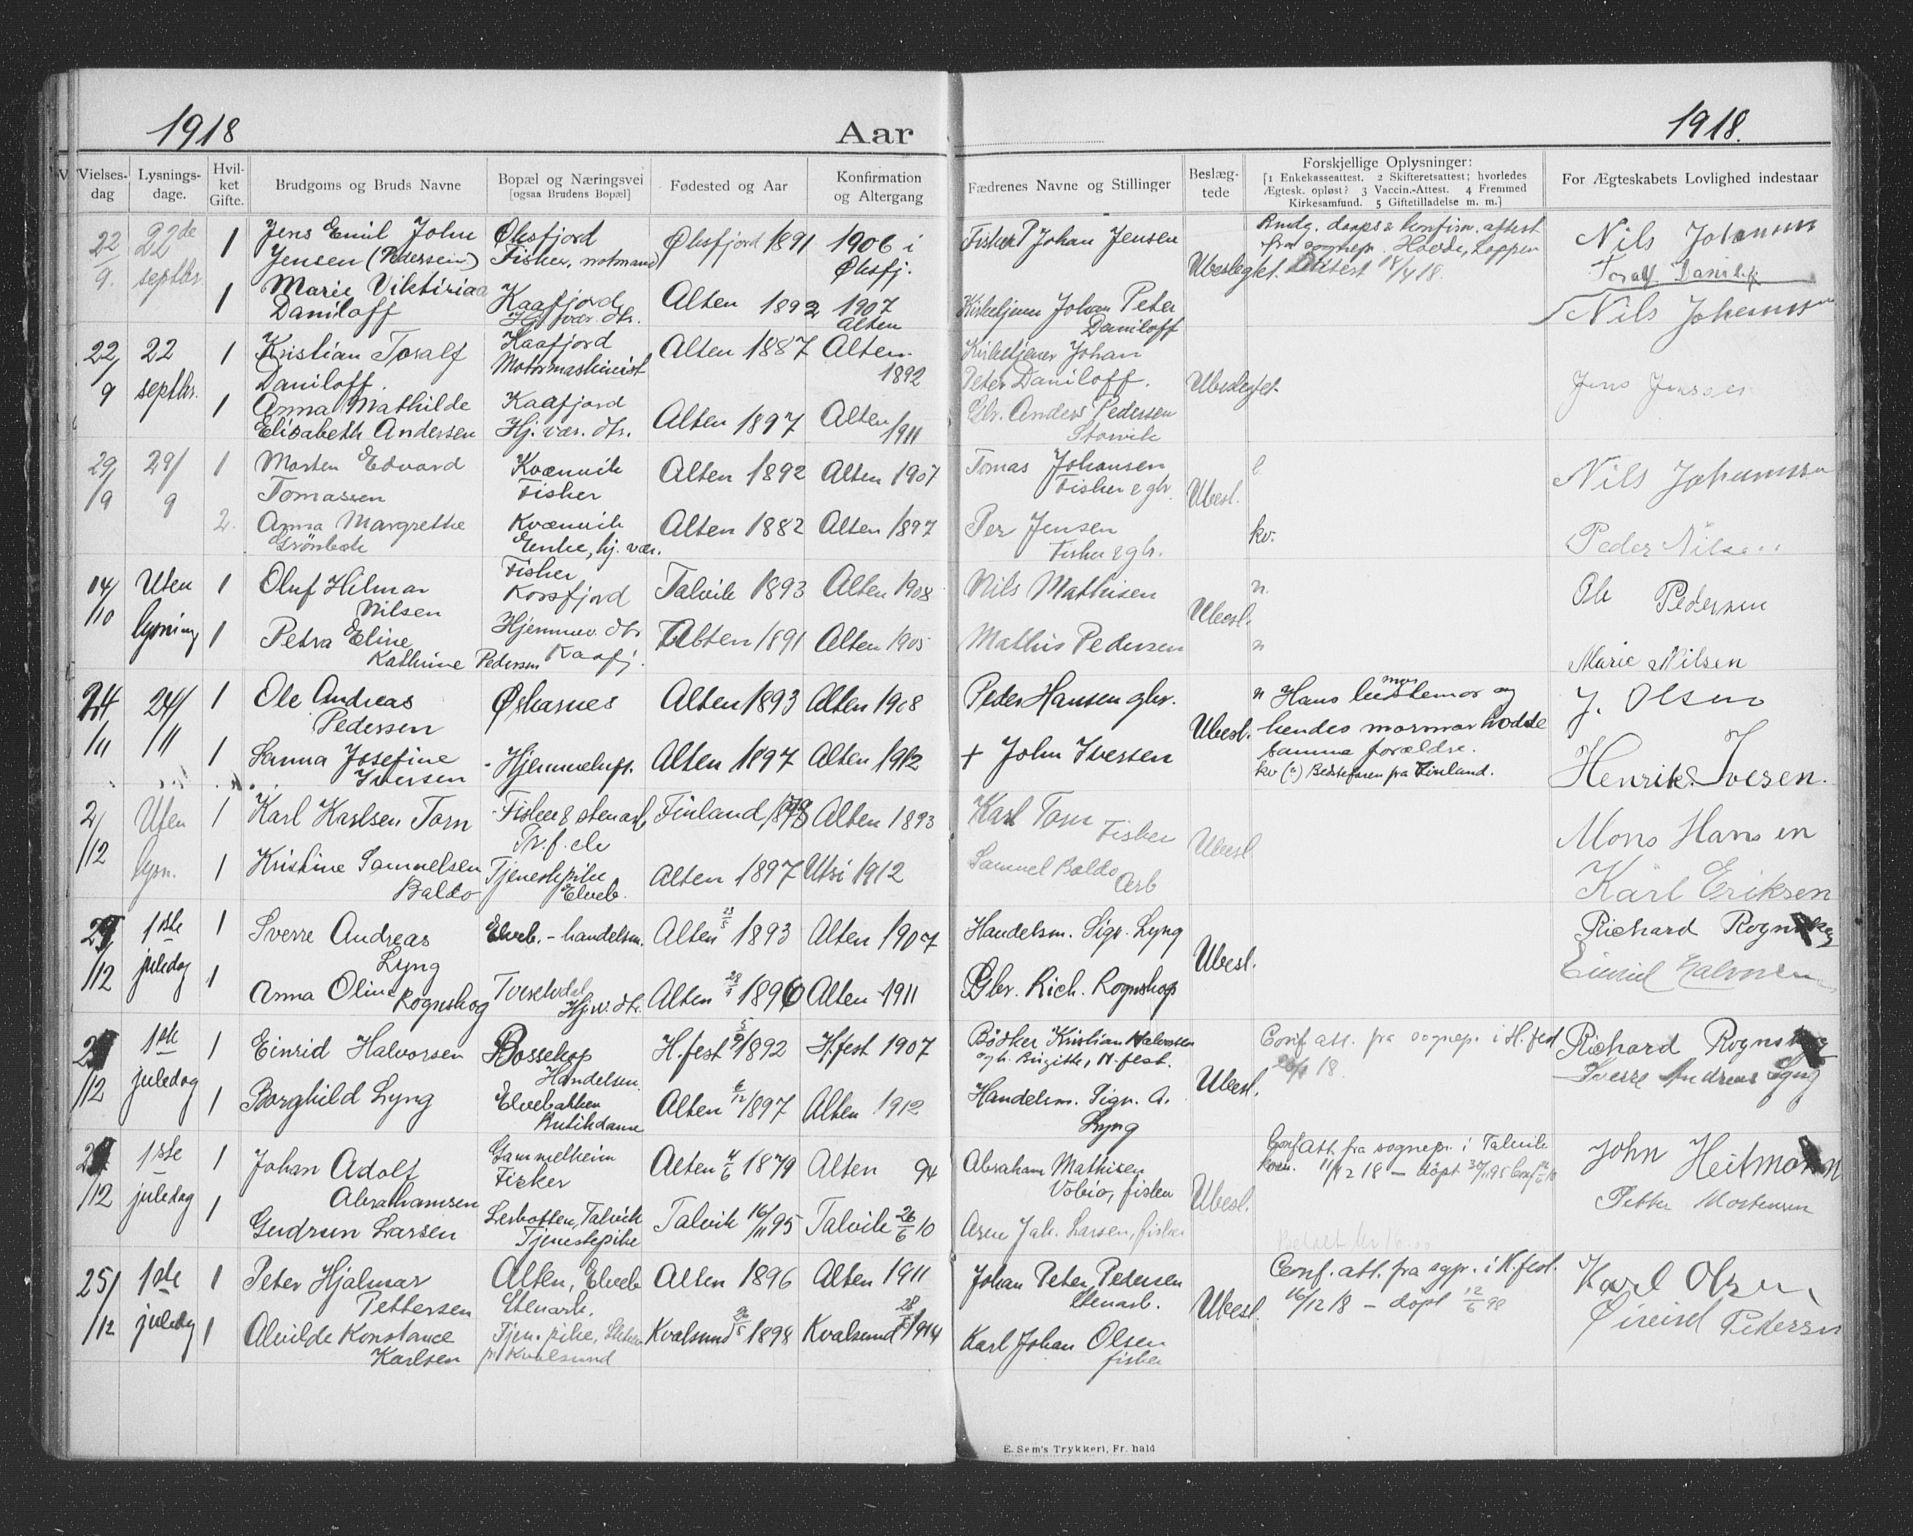 1918
Aar
1918.
Vielses-dag
Lysnings-dage.
Hvil-ket Gifte.
Brudgoms og Bruds Navne
Bopæl og Næringsvei
[ogsaa Brudens Bopæl]
Fødested og Aar
Konfirmation og Altergang
Fædrenes Navne og Stillinger
Beslæg-tede
Forskjellige Oplysninger:
[1 Enkekasseattest. 2 Skifteretsattest; hvorledes
Ægtesk. opløst? 3 Vaccin.-Attest. 4 Fremmed
Kirkesamfund. 5 Giftetilladelse m. m.]
For Ægteskabets Lovlighed indestaar
22/9. 22de septbr. 1 Jens Emil John Jensen (Pedersen) Øksfjord Fisker, notmand Øksfjord 1891 1906 i Øksfj. Fisker Johan Jensen Ubeslegtet. Brudg. daaps & konfirm. attest fra sognepr. Loppen 18/9 18. Nils Johansen
Toralf Daniloff
1 Marie Viktiria Daniloff Kaafjord Hj. vær. dtr. Alten 1892 1907 Alten Kirketjener Johan Peter Daniloff Nils Johansen
22/9 22 septbr. 1 Kristian Toralf Daniloff. Kaafjord Motormaskinist Alten 1887 Alten. 1892 Kirketjener Johan Peter Daniloff. Ubeslegtet. Jens Jensen
1 Anna Mathilde Elisabeth Andersen Kaafjord Hj. vær. dtr. Alten 1897 Alten 1911 Gbr. Anders Pedersen Storvik
29/9 29/9 1 Morten Edvard Tomassen Kvænvik Fisker Alten 1892 Alten 1907 Tomas Johansen Fisker & gbr. Ubesl. Nils Johansen
2. Anna Margrethe Grönbek Kvænvik Enke, hj. vær. Alten 1882 Alten 1897 Per Jensen Fisker & gbr. kv. Peder Nilsen
04/10 Uten lysning 1 Oluf Hilmar Nilsen Fisher Korsfjord Talvik 1893 Alten 1908 Nils Mathisen Ubesl. n. Ole Pedersen
1 Petra Eline Kathrine Pedersen Hjemmev. dtr. Kaafj. Alten 1891 Alten 1905 Mathis Pedersen n Marie Nilsen
24/11 24/11 1 Ole Andreas Pedersen Øskarnes Alten 1893 Alten 1908 Peder Hansen gbr. Ubesl. n Hans bestemor og hendes mormor hadde samme forældre. J. Olsen
1 Sanna Josefine Iversen Alten 1897 Alten 1912 + John Iversen kv (n) Bestefaren fra Finland. Henrik Ivesen.
2/12 Uten lysn. 1 Karl Karlsen Torn Fisker & stenarb. Finland 1878 Alten 1893 Karl Torn Fisker Ubesl. Mons Hansen
1 Kristine Sammelsen Baldo Tjenestepike Elveb. Alten 1897 Utsi 1912 Samuel Baldo Arb Karl Eriksen
/12 1ste juledag 1 Sverre Andreas Lyng Elveb. - handelsm. Alten 23/5 1893 Alten 1907 Handelsm. Sigv. Lyng Ubesl. Richard Rognskog
1 Anna Oline Rognskog Tverelvdal Hj. v. dtr. Alten 1896 Alten 1911 Gbr. Rich. Rognskog Einrid Halvorsen
/12 1ste juledag 1 Einrid Halvorsen Bossekop Handelsm. H.fest 1892 H.fest 1907 Bödker Kristian Halvorsen og h. Birgitte, H.fest. Ubesl. Conf att. fra sognepr. i H.fest 18. Richard Rognskog
1 Borghild Lyng Elvebakken Butikdame Alten 6/12 1897 Alten 1912 Handelsm. Sigv. A. Lyng Sverre Andreas Lyng
/12 1ste juledag 1 Johan Adolf Abrahamsen Gammelheim Fisker Alten 4/6 1879 Alten 94 Abraham Mathisen fisker Ubesl. Conf att. fra sognepr. i Talvik 11/12 18 — döpt 30/11 95 John Heitmann
1 Gudrun Larsen Lerbotten, Talvik Tjenestepike Talvik 16/11 95 Talvik 26/6 10 Aren Joh. Larsen, fisker Petter Mortensen
25/12 1ste juledag 1 Peter Hjalmar Pettersen Alten, Elveb Stenarb. Alten 1896 Alten 1911 Johan Peter Pedersen Stenarb. Ubesl. Conf. att. fra sgpr. i H.fest. 16/12 18 — döpt 12/6 98 Karl Olsen
1 Alvilde Konstance Karlsen Tjen. pike, Kvalsund Kvalsund 1898 Kvalsund 1914 Karl Johan Olsen fisker Pedersen
E. Sem's Trykkeri, Fr. hald